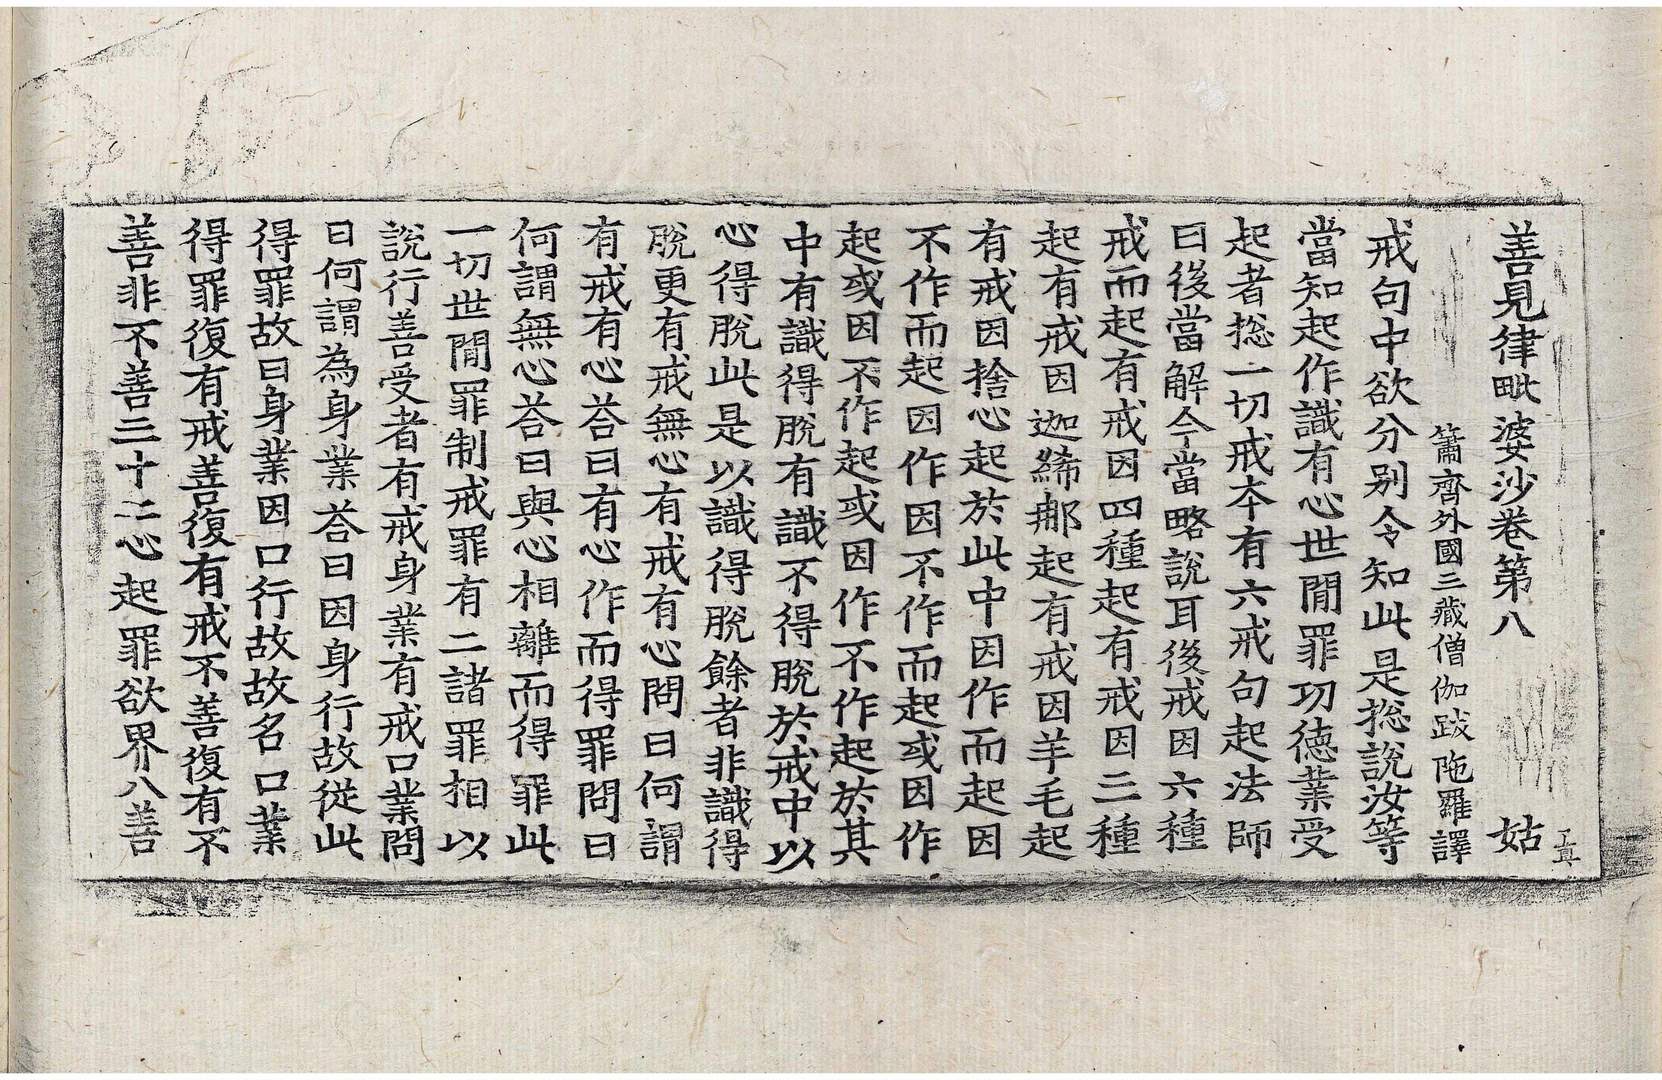 善見律毗婆沙卷第八 姑
簫齊外國三藏僧伽跋陁羅譯
戒句中欲分別令知此是揔說汝等
當知起作識有心世閒罪功德業受
起者揔一切戒本有六戒句起法師
曰後當解今當略說耳後戒因六種
戒而起有戒因四種起有戒因三種
起有戒因迦絺那起有戒因羊毛起
有戒因捨心起於此中因作而起因
不作而起因作因不作而起或因作
起或因不作起或因作不作起於其
中有識得脫有識不得脫於戒中以
心得脫此是以識得脫餘者非識得
脫更有戒無心有戒有心問曰何謂
有戒有心荅曰有心作而得罪問曰
何謂無心荅曰與心相離而得罪此
一切世閒罪制戒罪有二諸罪相以
說行善受者有戒身業有戒口業問
曰何謂為身業荅曰因身行故從此
得罪故曰身業因口行故故名口業
得罪復有戒善復有戒不善復有不
善非不善三十二心起罪欲界八善